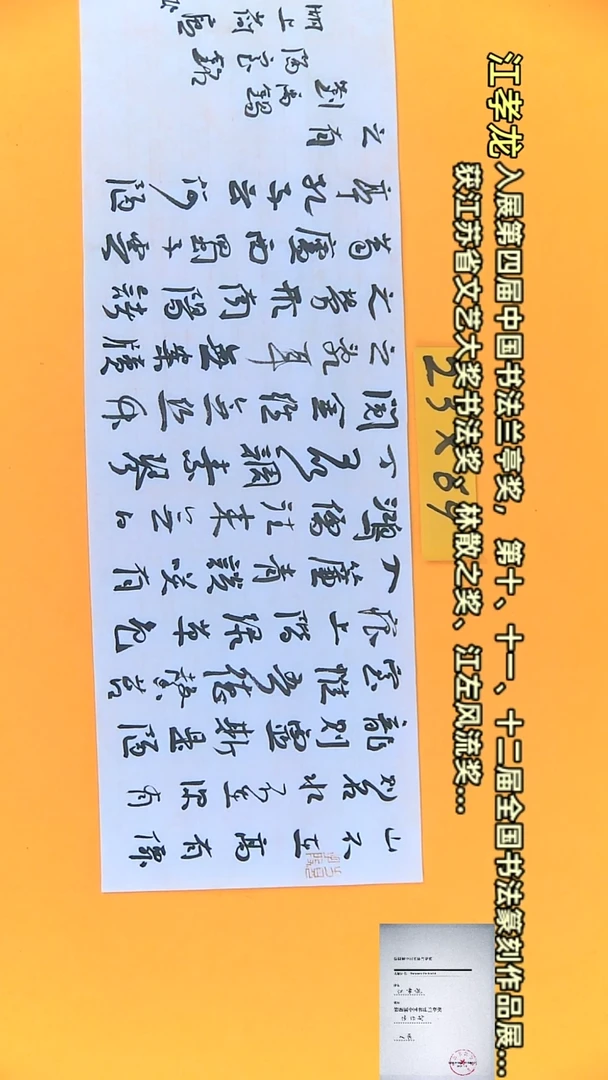 江孝龙 入展第四届中国书法兰亭奖，第十、十一、十二届全国书法篆刻作品展...
获江苏省文艺大奖书法奖、林散之奖、江左风流奖...
山不在高有僊
则名水不在深有
龍则靈斯是陋
室惟吾德馨苔
痕上階綠草色
入簾青談笑有
鴻儒往来無白
丁可以調素琴
閲金經無絲竹
之亂耳無案牘
之勞形南陽諸
葛廬西蜀子雲
亭孔子云何陋
之有
劉禹錫
陋室銘